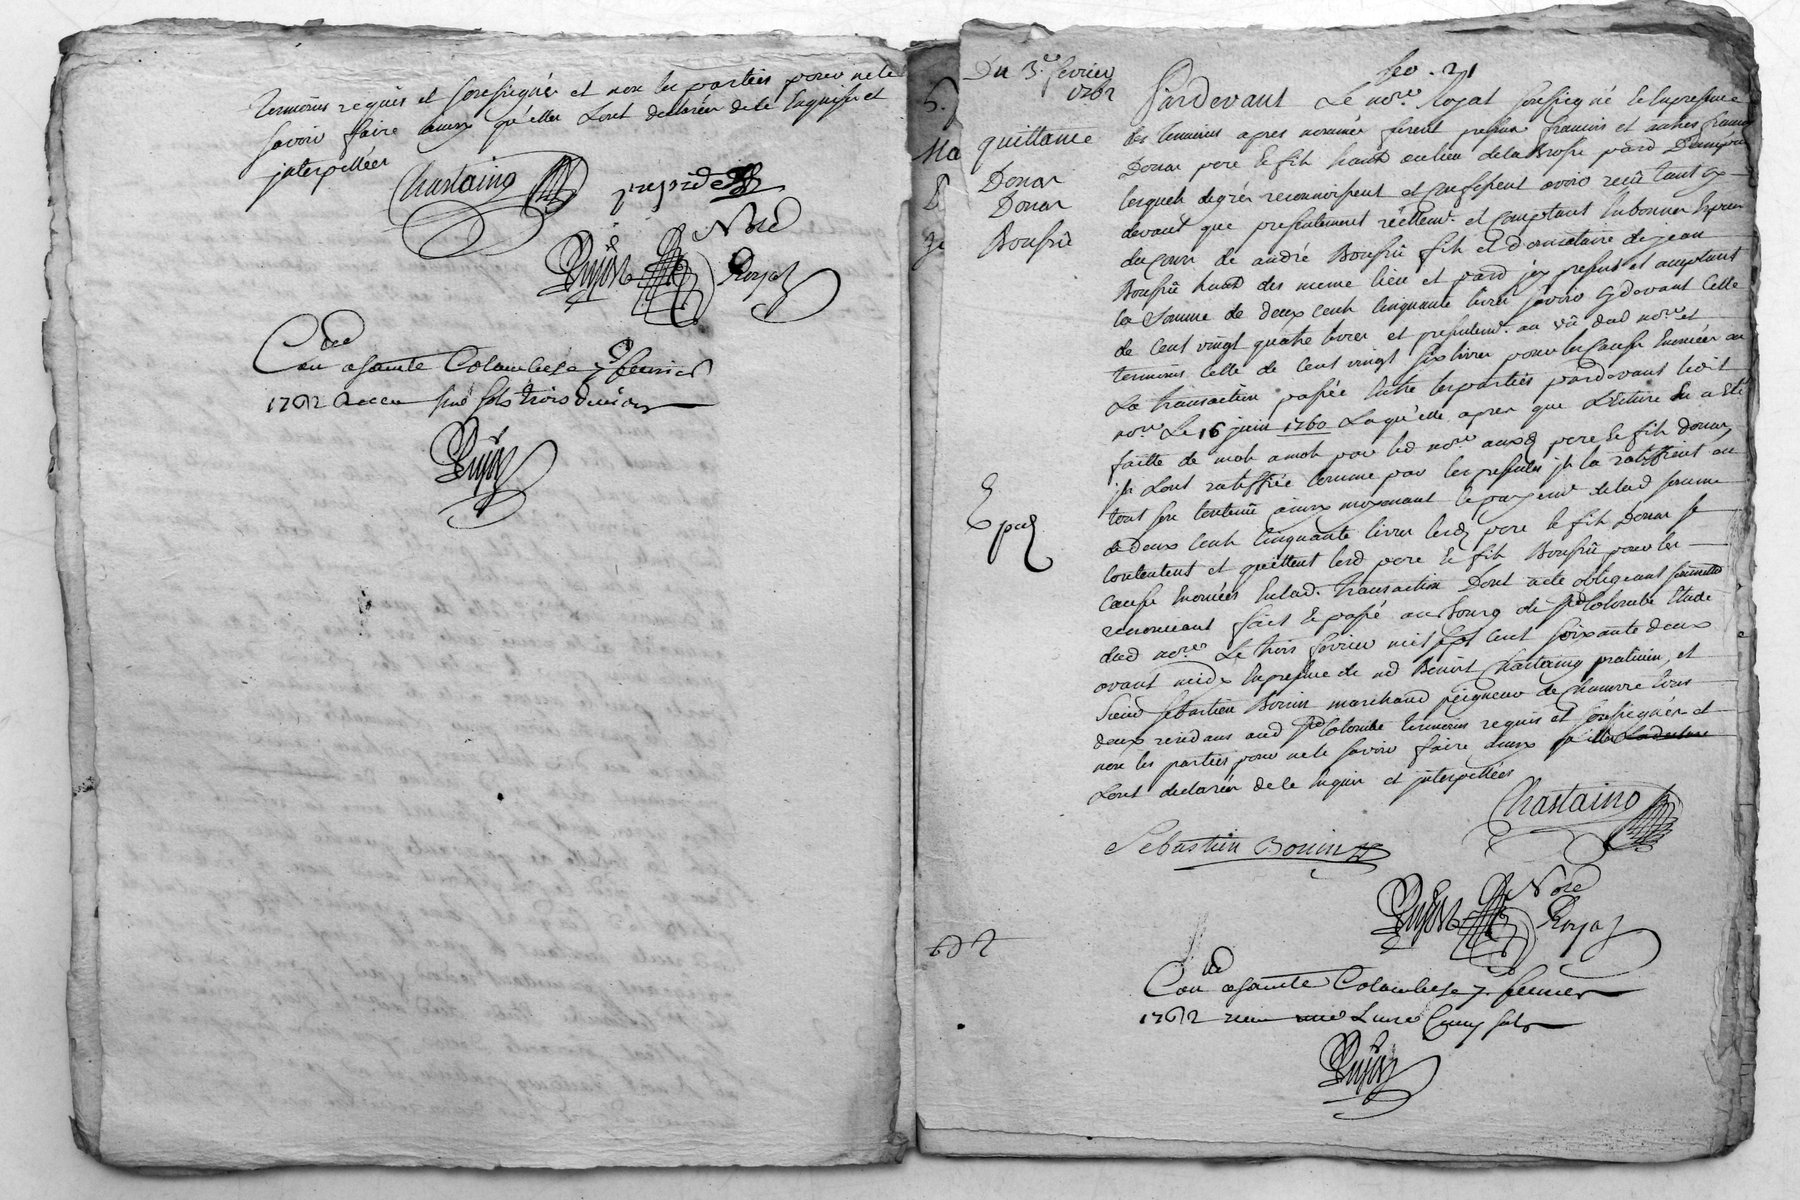 temoins requis et soussignés et non les parties pour ne le
savoir faire ainsy qu'elles l'ont declarées de ce enquises et
interpellées
Chastaing
Nore
Royat
Con a sainte Colombe le 7e fevrier
1762 Receu sols trois deniers
Du 3e fevrier
1762
feo. 21
quittance
Donar
Donar
Boussû
Expd
Pardevant Le nore Royat soussigné En presence
des temoins apres nommés furent presens francois et autre francois
Donar pere et fils habts au lieu de la Brosse parr
lesquels de gré reconnoissent et confessent avoir reçu tant cy
devant que presentement réellemt et comptant en bonnes especes
du cours de andré Boussû fils et donnataire de jean
Boussû habt des meme lieu et parr icy present et acceptant
la somme de deux cents cinquante livres sçavoir cy devant celle
de cent vingt quatre livres et presentemt au vû dud nore et
temoins celle de cent vingt six livres pour les causes enoncées en
La transaction passée entre les parties pardevant led
nore Le 16 juin 1760 Laquelle apres que Lecture En a eté
faitte de mot a mot par led nore auxd pere et fils donar
ils L'ont ratiffiée comme par les presentes ils la ratiffient en
tout son contenû ainsy moyenant le payemt de lad somme
de deux cents cinquante livres lesd pere et fils Donar se
contentent et quittent lesd pere et fils Boussû pour les
causes enoncées en lad. transaction Dont acte obligeant
renonceant fait et passé au bourg de Ste Colombe Etude
dud nore Le trois fevrier mil sept cent soixante deux
avant midy En presence de md Benoit Chastaing praticien, et
sieur sebastien Bonin marchand peigneur de chanvre tous
deux residans aud Ste Colombe temoins requis et soussignés et
non les parties pour ne le savoir faire ainsy qu'elles
L'ont declarées de ce enquis et interpellées
Chastaing
Sebastien Bonin
Nore
Royat
Con a sainte Colombe le 7e fevrier
1762 receu une Livre Cinq sols